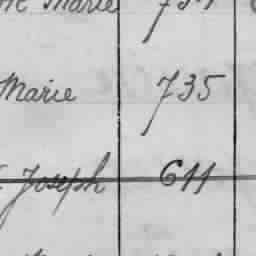 Marie
Marie 735
Joseph 611